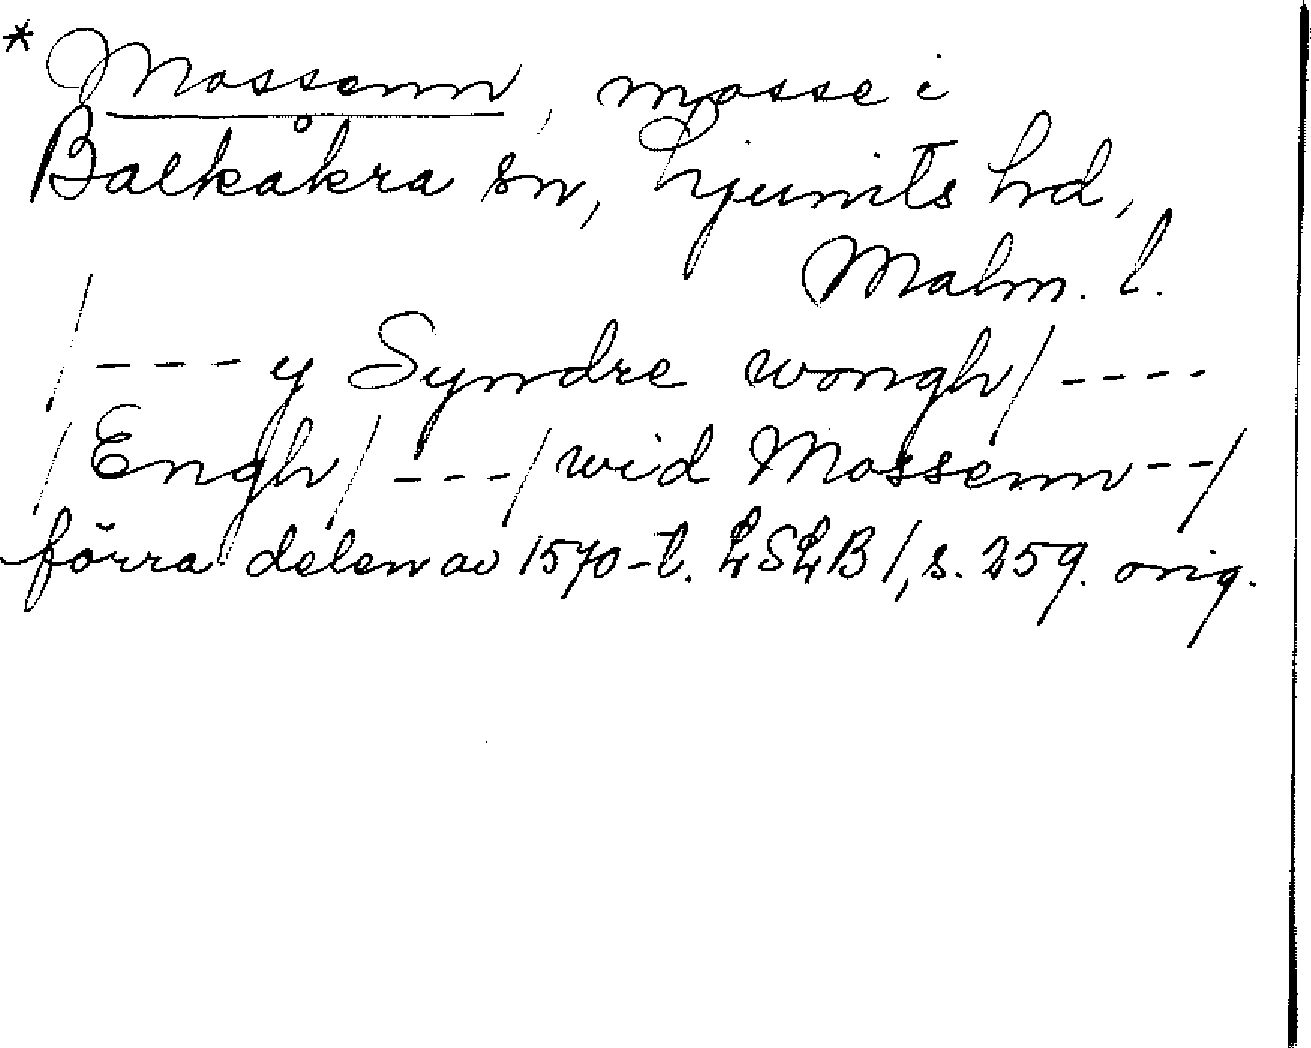 * Mossenn, mosse i
Balkåkra sn, Ljunits hd,
Malm. l.
/---y Syndre wongh/----
/Engh/---/wid Mossenn--/
förra delen av 1570-t. LSLB 1, s. 259. orig.